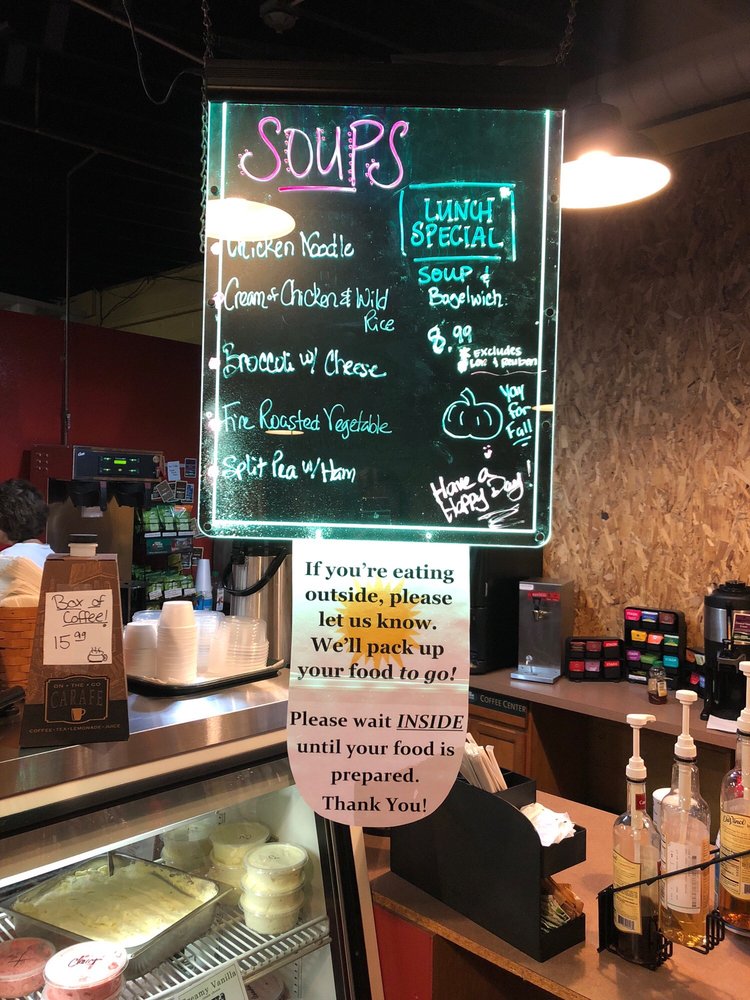 SOUPS
Chicken Noodle
Cream of Chicken & Wild
Rice
Broccoli w/ Cheese
Fire Roasted Vegetable
Split Pea w/ Ham
LUNCH
SPECIAL
SOUP &
Bagelwich
8.99
Excludes
Lox & Reuben
Yay
for
Fall
Have a
Happy Day!
If you're eating
outside, please
let us know.
We'll pack up
your food to go!
Please wait INSIDE
until your food is
prepared.
Thank You!
Box of
Coffee!
15.99
ON • THE • GO
CARAFE
COFFEE • TEA • LEMONADE • JUICE
COFFEE CENTER
DaVinci
Creamy Vanilla